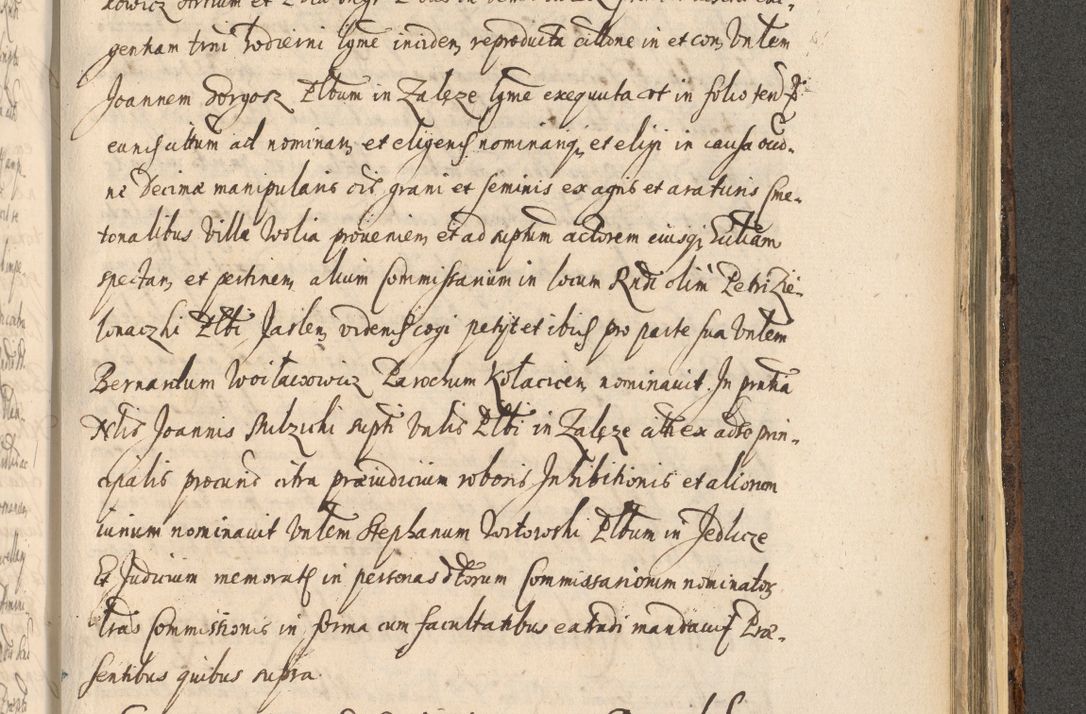 gentiam trni hodierni lgme inciden, reproducta citone in et con, Vnlem
Joannem Gorgosz Plbum in Zalęze lgme exequuta et in folio ten
ad nominan, et eligend nominariq, et eligi in causa
ne Decimæ manipularis cis grani et seminis ex agris et araturis Sme-
tonalibus Villæ Wolia prouenien, et ad suptum actorem eiusq,
spectan, et pertinen, alium Commissarium in locum Rndi olim Petri Zie-
lonaczki Plbi Jaslen, videnc cogi petyt et ibid pro parte sua Vnlem
Bernardum Woitaxowicz Parochum Kołacicen, nominauit. In prntia
Nlis Joannis Rubzicki supti Vnlis Plbi in Zalęze citti ex adso prin-
cipalis procuns citra præiudicium roboris Inhibitionis et aliorum
iurium nominauit Vnlem Stephanum Wotowski Plbum in Jedlicze
Et Judicium memorat in personas dtorum Commissariorum nominator
lras Commissionis in forma cum facultatibus extradi mandauit Præ-
sentibus quibus supra